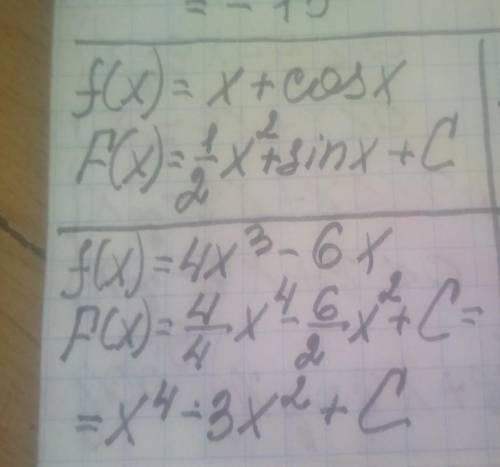 = - 15
f(x) = x + cosx
F(x) = 1/2 x² + sinx + C
f(x) = 4x³ - 6x
F(x) = 4/4 x⁴ - 6/2 x² + C =
= x⁴ - 3x² + C